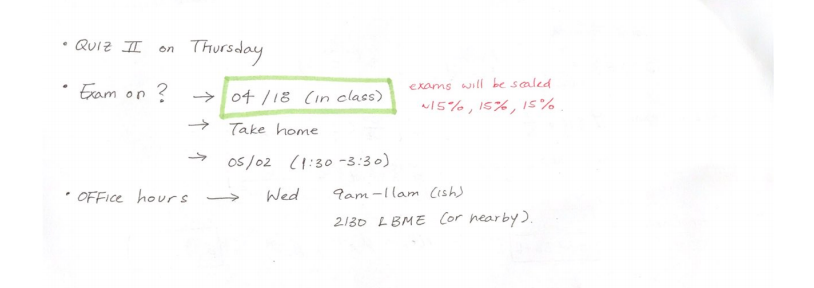 • QUIZ II on Thursday
• Exam on ? → 04/18 (in class) exams will be scaled
~15%, 15%, 15%.
→ Take home
→ 05/02 (1:30-3:30)
• OFFice hours → Wed 9am-11am (ish)
2130 LBME (or nearby).